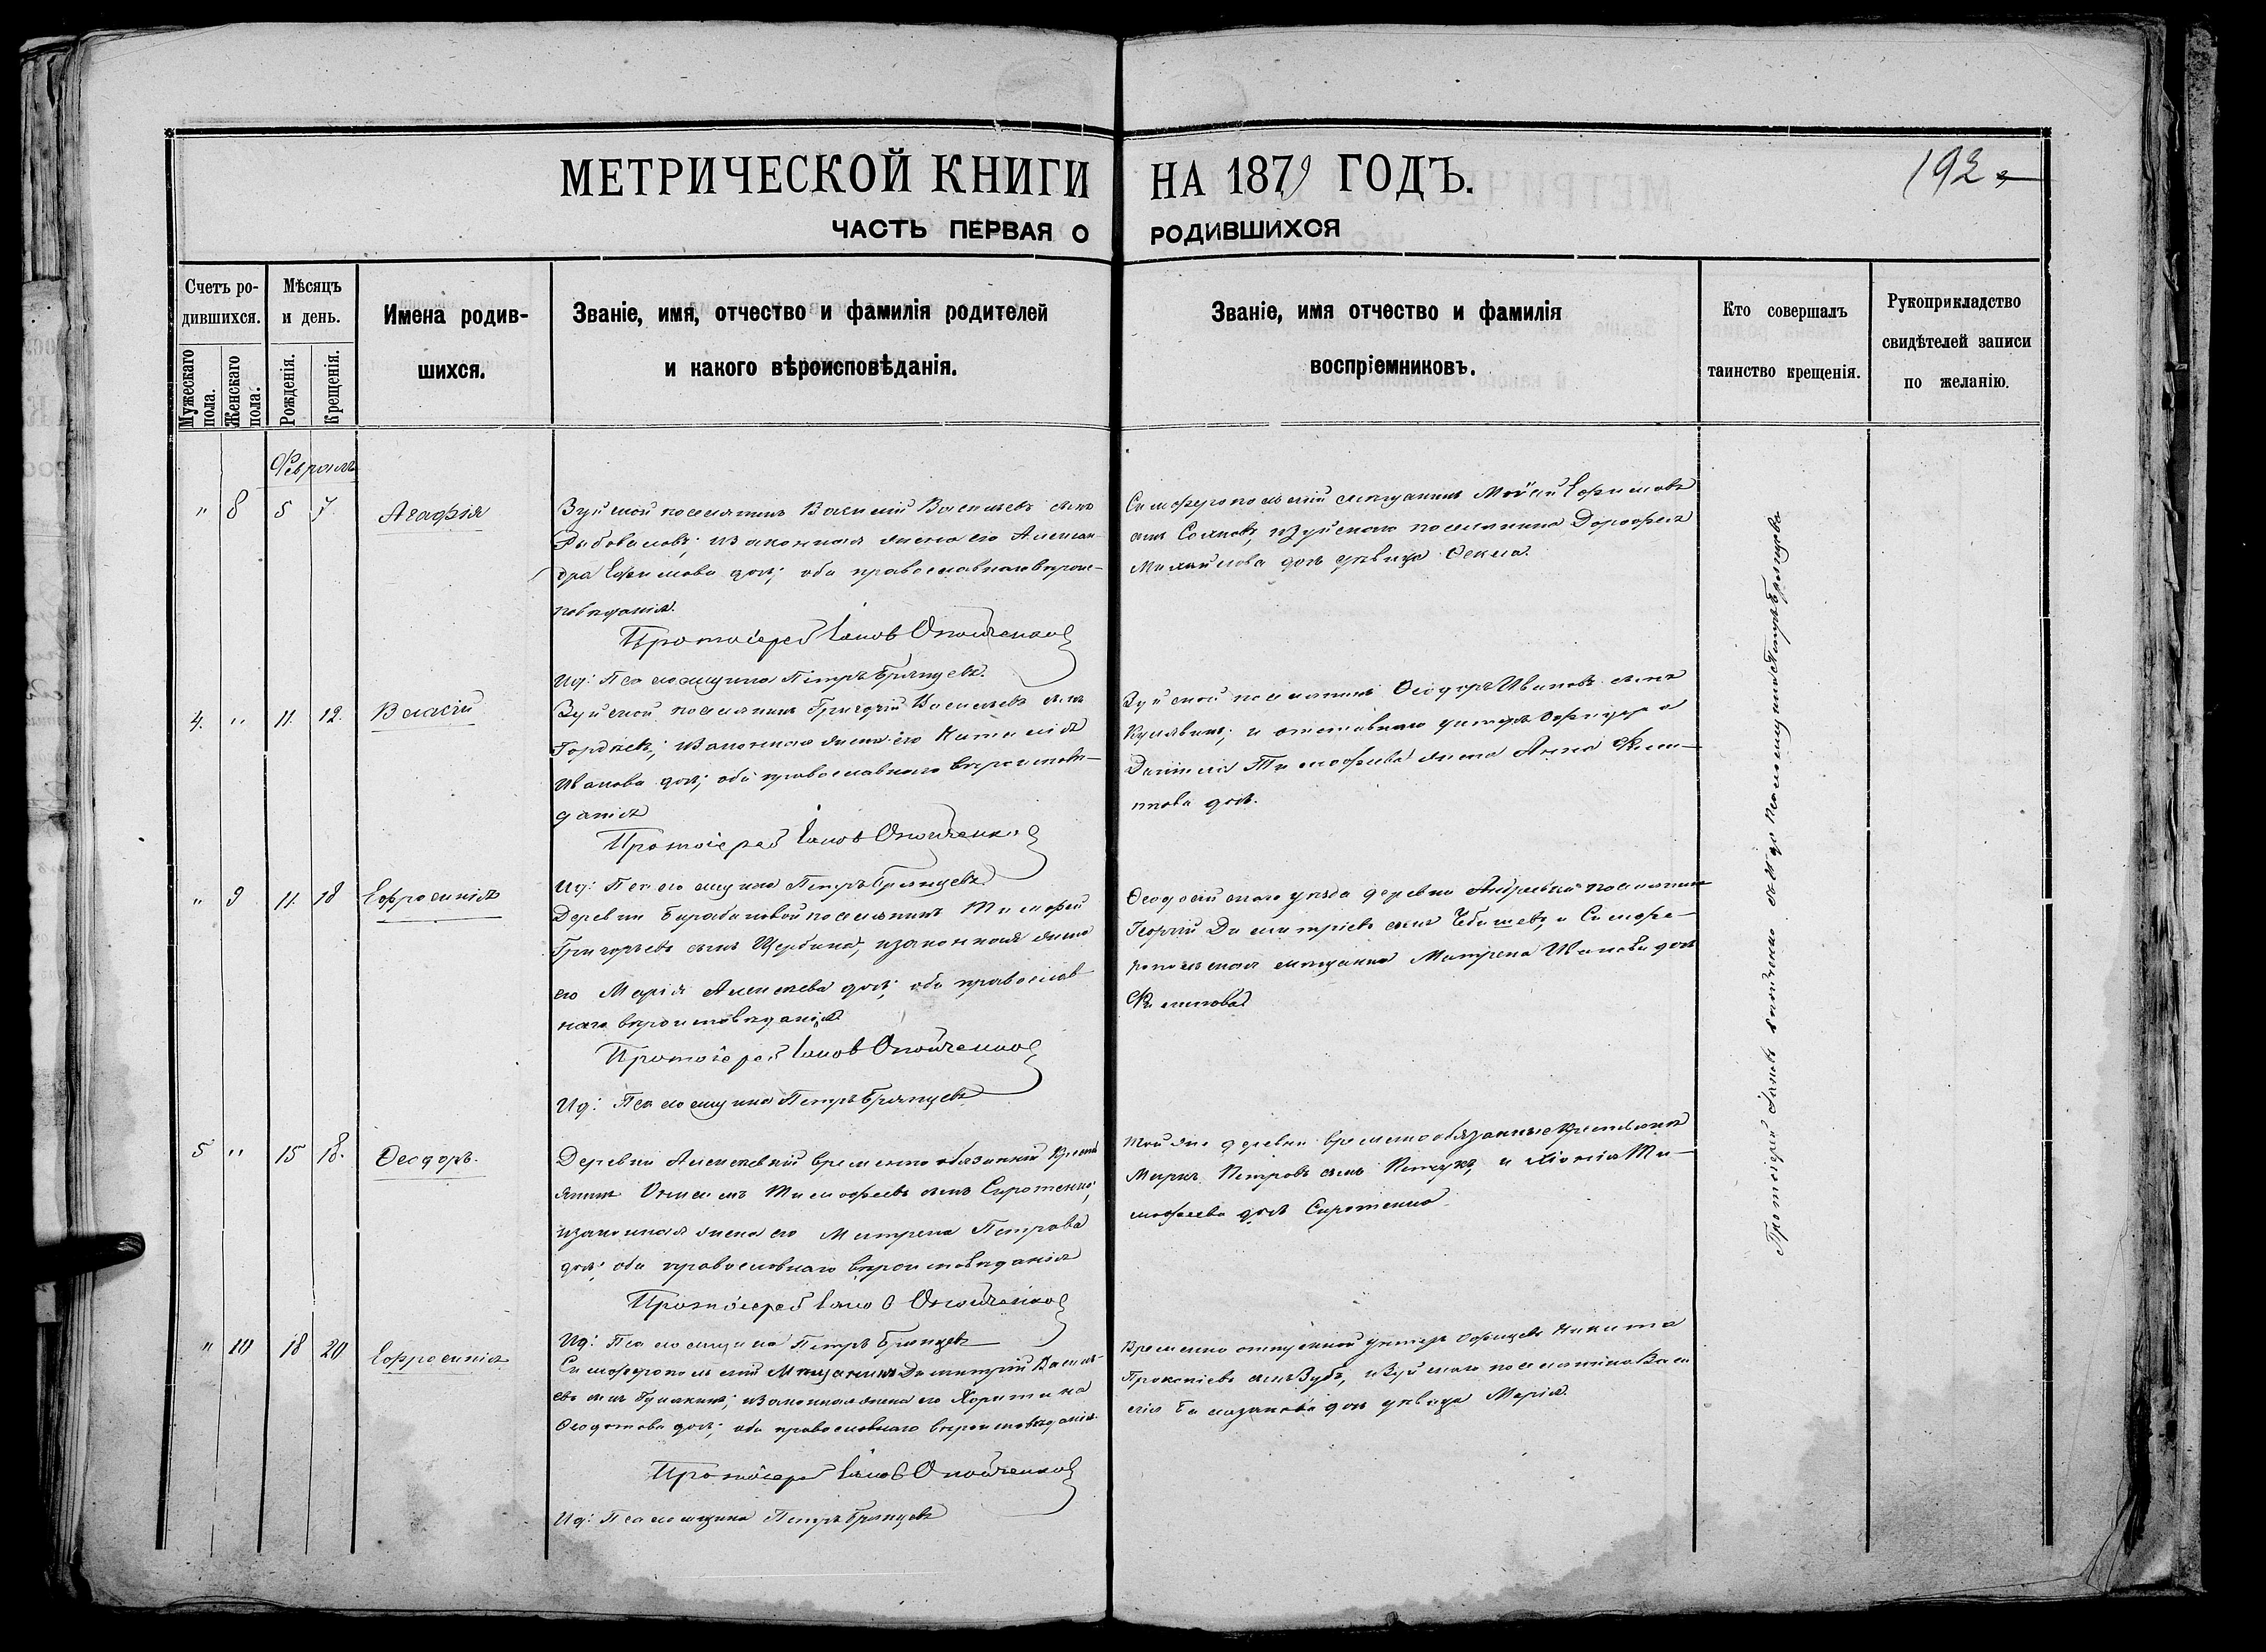 МЕТРИЧЕСКОЙ КНИГИ НА 1879 ГОДЪ.
192
ЧАСТЬ ПЕРВАЯ О РОДИВШИХСЯ
Счетъ ро-
дившихся.
Мужескаго пола.
Женскаго пола.
Мѣсяцъ
и день.
Рожденія.
Крещенія.
Имена родив-
шихся.
Званіе, имя, отчество и фамилія родителей
и какого вѣроисповѣданія.
Званіе, имя отчество и фамилія
воспріемниковъ.
Кто совершалъ
таинство крещенія.
Рукоприкладство
свидѣтелей записи
по желанію.
Февраль
" 8 5 7. Агафія
Зуйской поселянинъ Василій Васильевъ сынъ
Рыбоваловъ; и законная жена его Алексан-
дра Ефимова доч; оба православнаго вѣроис-
повѣданія.
Протоіерей Іаков
Ид: Псаломщика Петръ Брянцевъ.
Симферопольскій мещанинъ Ефимовъ
сынъ и Зуйскаго поселянина Дорофея
Михайлова дочь дѣвица Фекла.
4. " 11. 12. Власій
Зуйской поселянинъ Григорій Васильевъ сынъ
и законная жена его Наталія
Иванова доч; оба православнаго вѣроисповѣ-
данія
Протоіерей Іаков
Ид: Псаломщика Петръ Брянцевъ
Зуйской поселянинъ Феодоръ Ивановъ сынъ
и отставнаго унтеръ офицера
Даніила Тимофеева жена Анна Фили-
пова доч.
" 9 11. 18 Ефросинія
Деревни Барабановой поселянинъ Тимофей
Григорьевъ сынъ Щербина, и законная жена
его Марія Алексеева доч; оба православ-
наго вѣроисповѣданія
Протоіерей Іаков
Ид: Псаломщика Петръ Брянцевъ
Феодосійскаго уѣзда деревни Андреевки поселянинъ
Георгій Димитріевъ сынъ и Симфе-
ропольская мещанка Матрена Иванова дочь
Филипова
5 " 15 18. Феодоръ.
Деревни Алексеевкий временно обязанный крест
янинъ Тимофеевъ сынъ Сиротенко,
и законная жена его Матрена Петрова
доч; оба православнаго вѣроисповѣданія
Протоіерей Іаков
Ид: Псаломщика Петръ Брянцевъ
Той же деревни временнообязанные крестьяне
Маркъ Петровъ сынъ и Хіонія Ти-
мофеева доч Сиротенко
" 10 18 20 Ефросинія
Симферопольскій Мещанинъ Димитрій Василь
евъ сынъ и законная жена его Харитина
Феодотова доч; оба православнаго вѣроисповѣданія.
Протоіерей Іаков
Ид: Псаломщика Петръ Брянцевъ
Временно отпускной унтеръ офицеръ Никита
Прокопіевъ сынъ Зубъ, и Зуйскаго поселянина Васи
лія дочь дѣвица Марія.
Протоіерей Іаковъ съ и: до псаломщика Петръ Брянцевъ